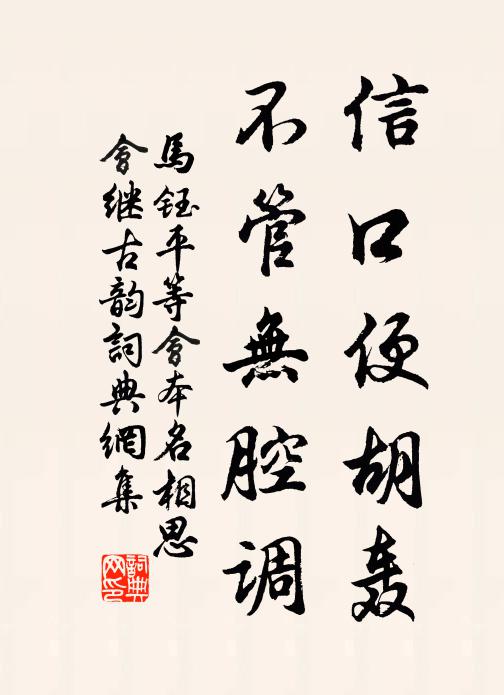 信口便胡轰
不管無腔调
馬钰平等會本名相思
會继古韵詞典網集
詞典网印